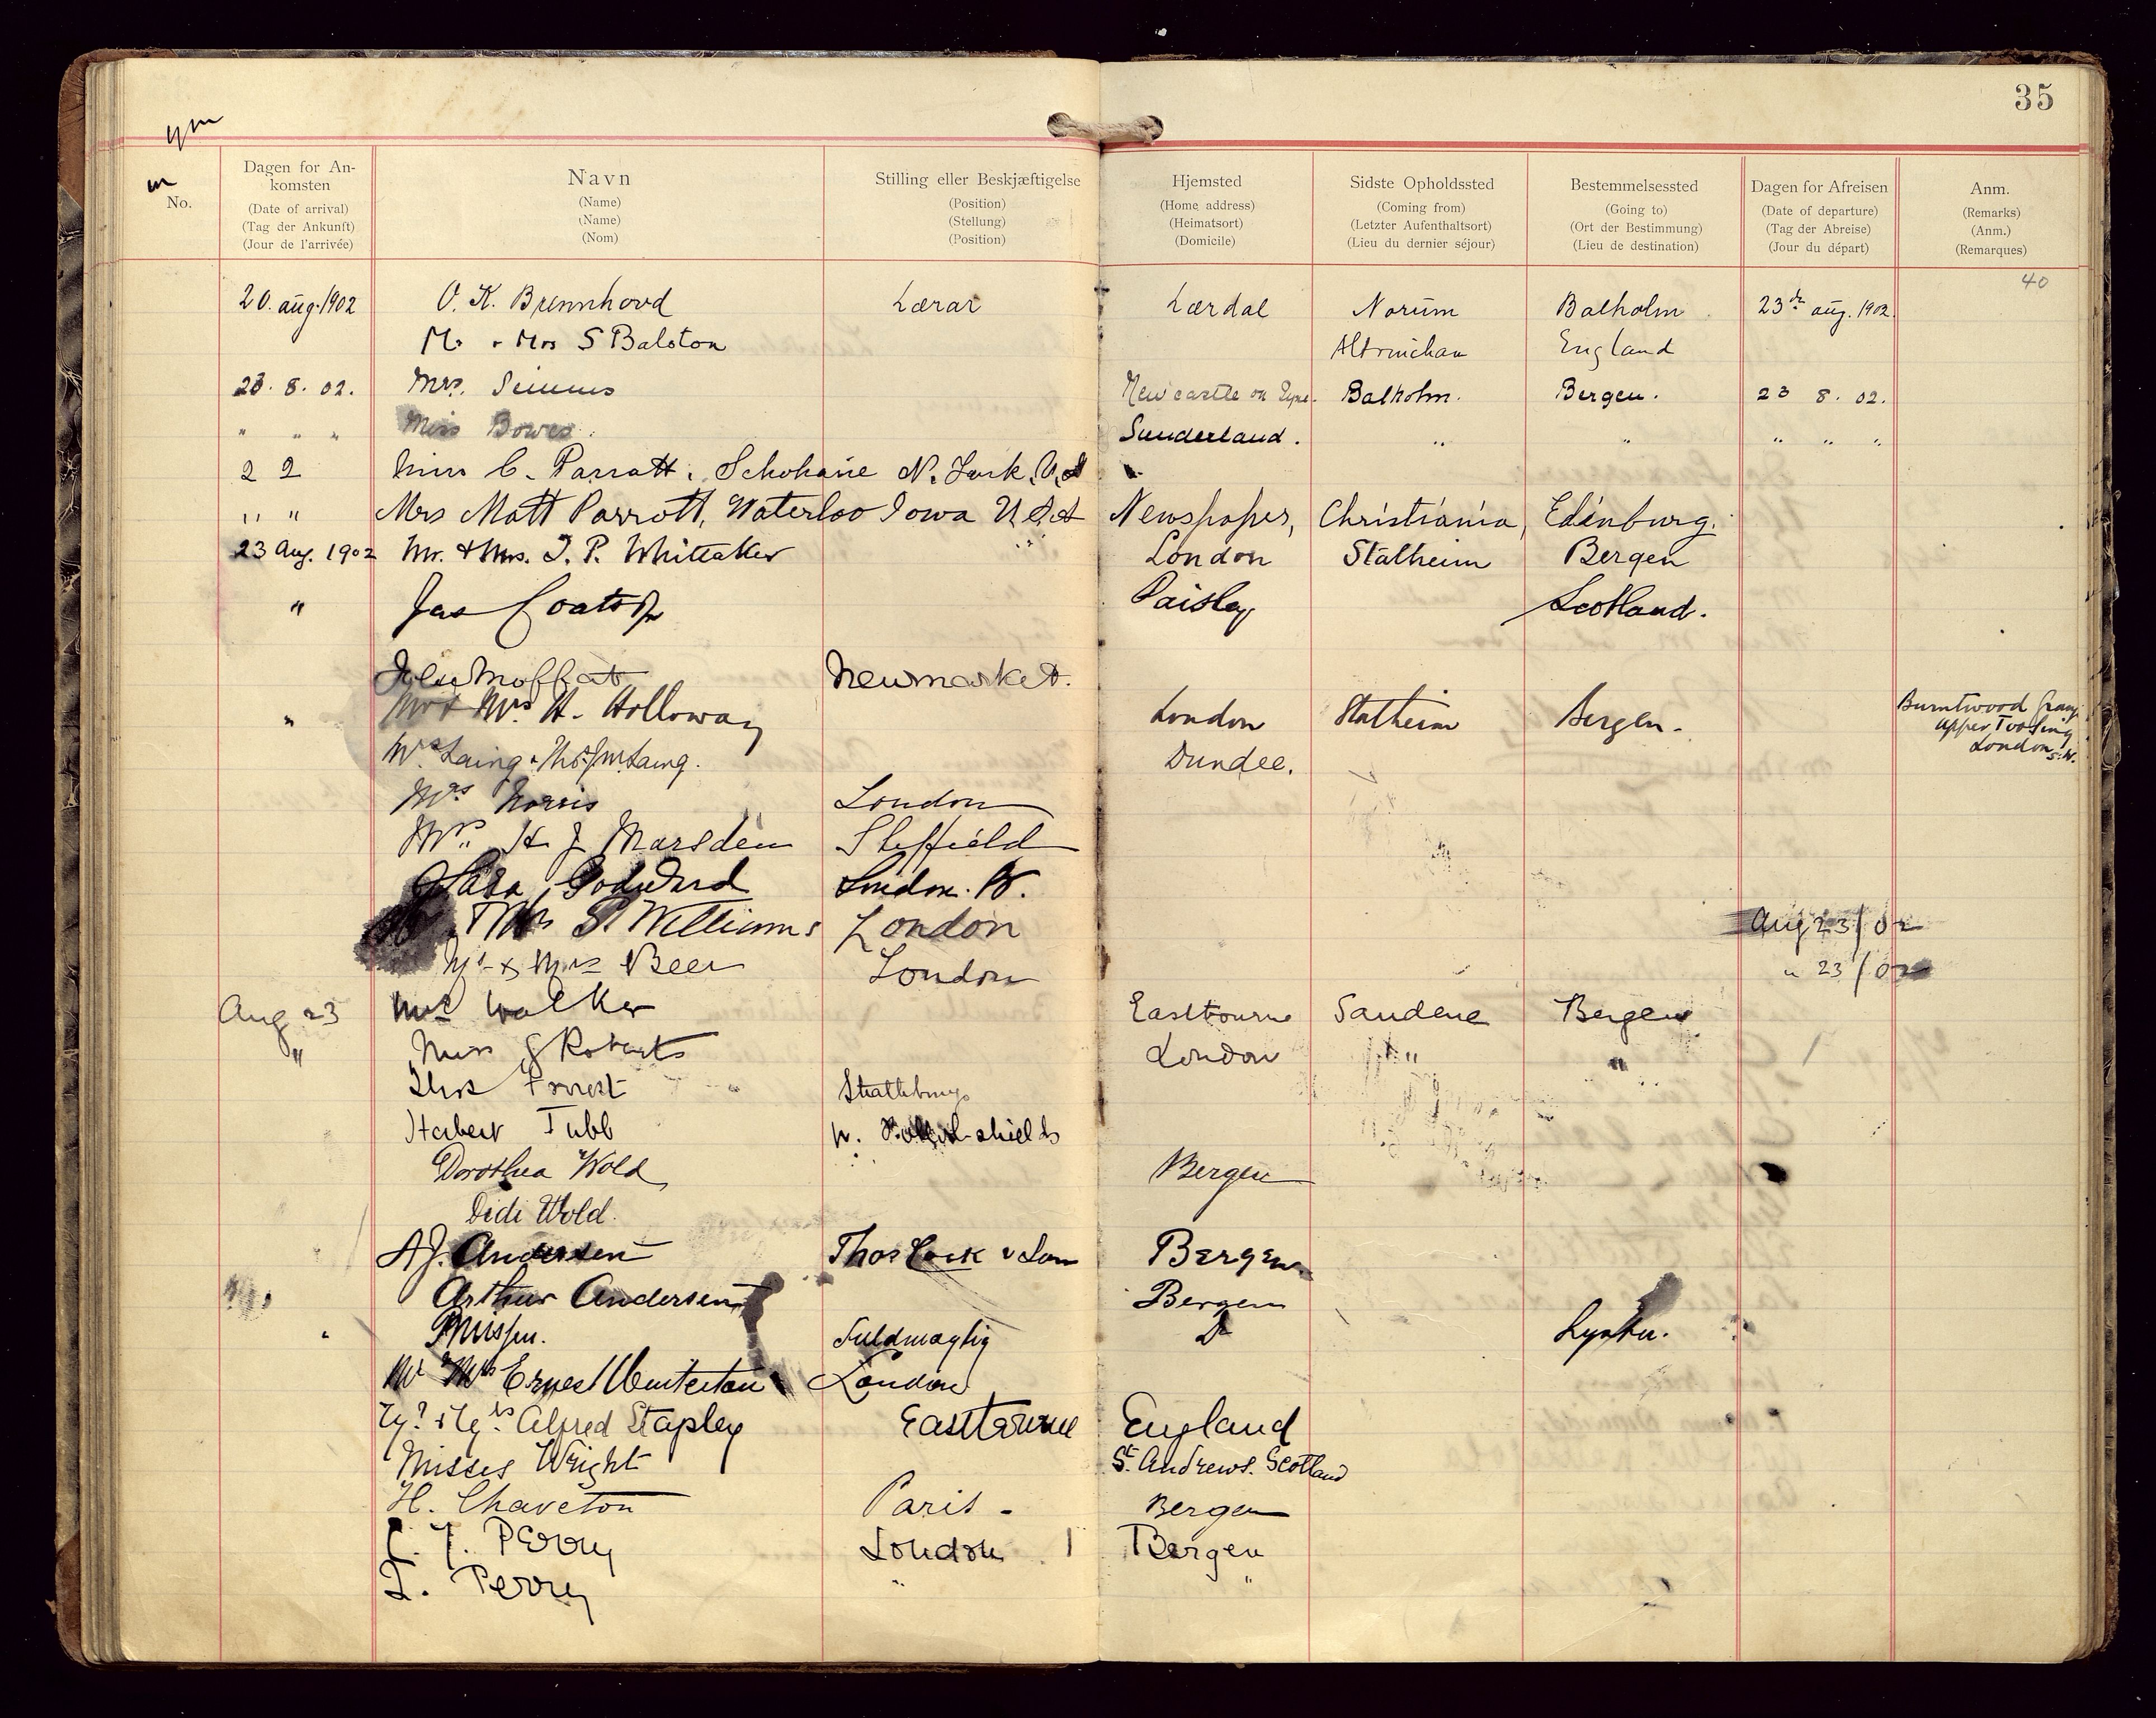 35
Dagen for An-
komsten
(Date of arrival)
(Tag der Ankunft)
(Jour de l'arrivée)
No.
Navn
(Name)
(Name)
(Nom)
Stilling eller Beskjæftigelse
(Position)
(Stellung)
(Position)
Hjemsted
(Home address)
(Heimatsort)
(Domicile)
Sidste Opholdssted
(Coming from)
(Letzter Aufenthaltsort)
(Lieu du dernier séjour)
Bestemmelsessted
(Going to)
(Ort der Bestimmung)
(Lieu de destination)
Dagen for Afreisen
(Date of departure)
(Tag der Abreise)
(Jour du départ)
Anm.
(Remarks)
(Anm.)
(Remarques)
40
20. aug. 1902 O. K. Brennhovd Lærar Lærdal Norum Balholm 23de aug. 1902.
Mr. & Mrs S Balston Altrincham England
23. 8. 02. Mrs. Simms Newcastle on Tyne. Balholm. Bergen. 23 8. 02.
" " " Miss Bowes Sunderland. " " " " "
22 Miss C. Parrott, Schoharie N. York, U.S
" " Mrs Matt Parrott, Waterloo Iowa U S A Newspaper, Christiania, Edinburg.
23 Aug. 1902 Mr. & Mrs. T. P. Whittaker London Stalheim Bergen
" Jas Coats Jr Paisley Scotland.
Moffat Newmarket.
" Mr & Mrs H. Holloway London Stalheim Bergen. Burntwood Grange
Upper Tooting
London
S.W.
Mrs Laing & Laing. Dundee.
Mrs Norris London
Mrs. H J Marsden Sheffield
Godward London. W.
Mrs S. Williams London Aug 23/02
Mr & Mrs Beer London " 23/02
Aug 23 Mrs Walker Eastbourne Sandene Bergen
" Miss G Roberts London " "
Forrest
Herbert Tubb shields
Dorothea Wold Bergen
Didi Wold.
A.J. Andersen Thos Cook & Son Bergen
Arthur Andersen Bergen
Fuldmægtig Do Lyster.
Mr & Mrs Ernest Winterton London
Alfred Stapley Eastbourne England
Misses Wright St. Andrews. Scotland
H. Chaveton Paris - Bergen
Perry London Bergen
Perry " "